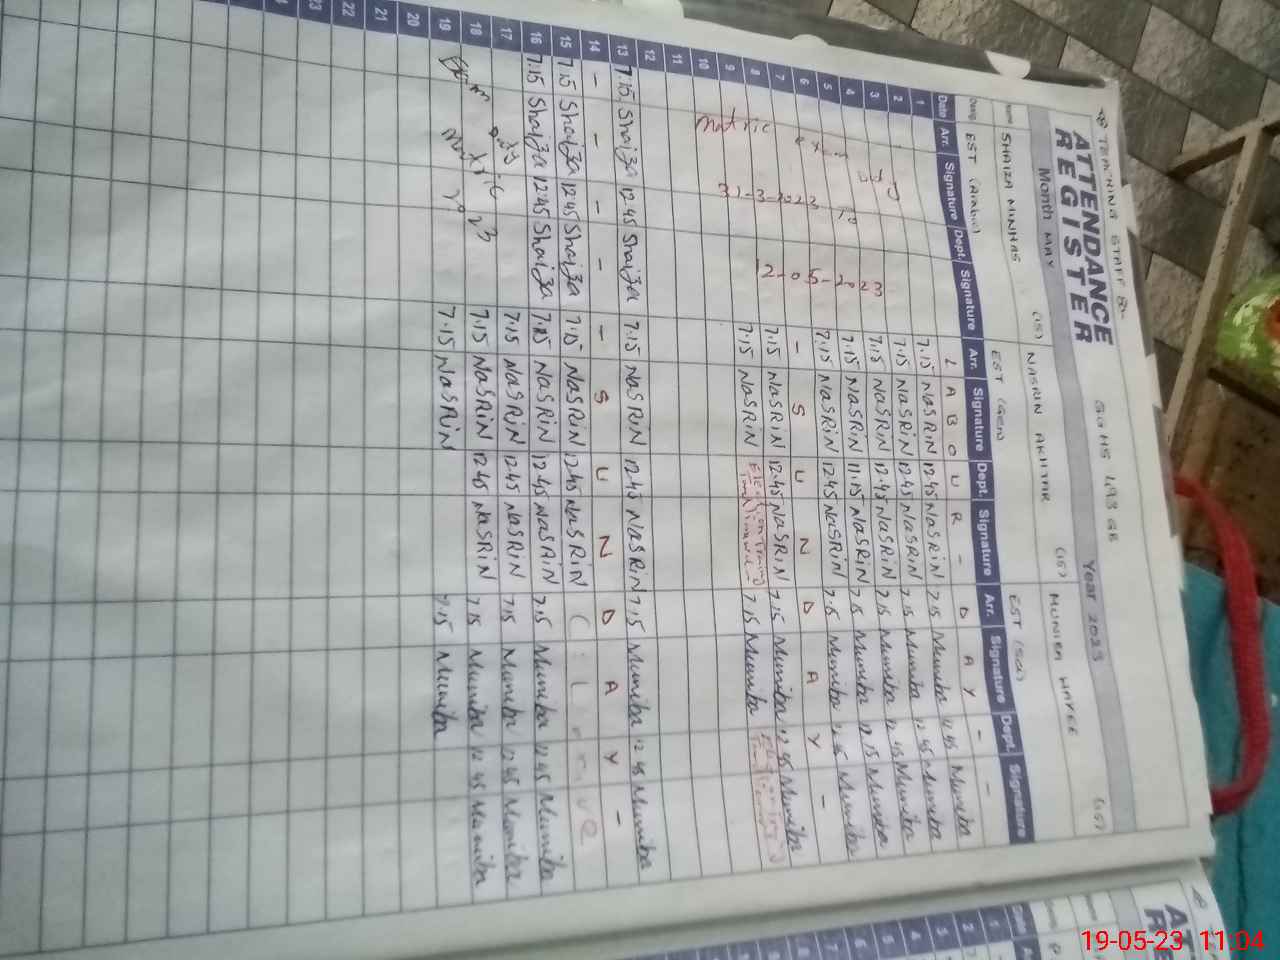 TEACHING STAFF
GGHS 493 GB
ATTENDANCE REGISTER
Month MAY Year 2023
Name SHAIZA MINHAS (15) NASRIN AKHTAR (15) MUNIBA HAYEE (15)
Desig. EST (Arabic) EST (Gen) EST (Sci)
Date Arr. Signature Dept. Signature Arr. Signature Dept. Signature Arr. Signature Dept. Signature
1 L A B O U R - D A Y - -
2 7.15 NASRIN 12.45 NASRIN 7.15 Muniba 12 45 Muniba
3 7.15 NASRIN 12.45 NASRIN 7.15 Muniba 12 45 Muniba
4 7.15 NASRIN 12.45 NASRIN 7.15 Muniba 12 45 Muniba
5 7.15 NASRIN 11.15 NASRIN 7.15 Muniba 12 15 Muniba
6 7.15 NASRIN 12.45 NASRIN 7.15 Muniba 12 45 Muniba
matric exam duty
31-3-2023 To
12-05-2023
7 - S U N D A Y -
8 7.15 NASRIN 12.45 NASRIN 7.15 Muniba 12 45 Muniba
9 7.15 NASRIN Election Training 7.15 Muniba
10
11
12
13 7.15 Shaiza 12 45 Shaiza 7.15 NASRIN 12.45 NASRIN 7.15 Muniba 12 45 Muniba
14 - - - - - S U N D A Y -
15 7.15 Shaiza 12 45 Shaiza 7.15 NASRIN 12.45 NASRIN C. Leave
16 7.15 Shaiza 12 45 Shaiza 7.15 NASRIN 12.45 NASRIN 7.15 Muniba 12 45 Muniba
17 7.15 NASRIN 12.45 NASRIN 7.15 Muniba 12 45 Muniba
18 7.15 NASRIN 12.45 NASRIN 7.15 Muniba 12 45 Muniba
19 7.15 NASRIN 7.15 Muniba
Exam duty
Matric 2023
20
21
22
23
19-05-23 11:04